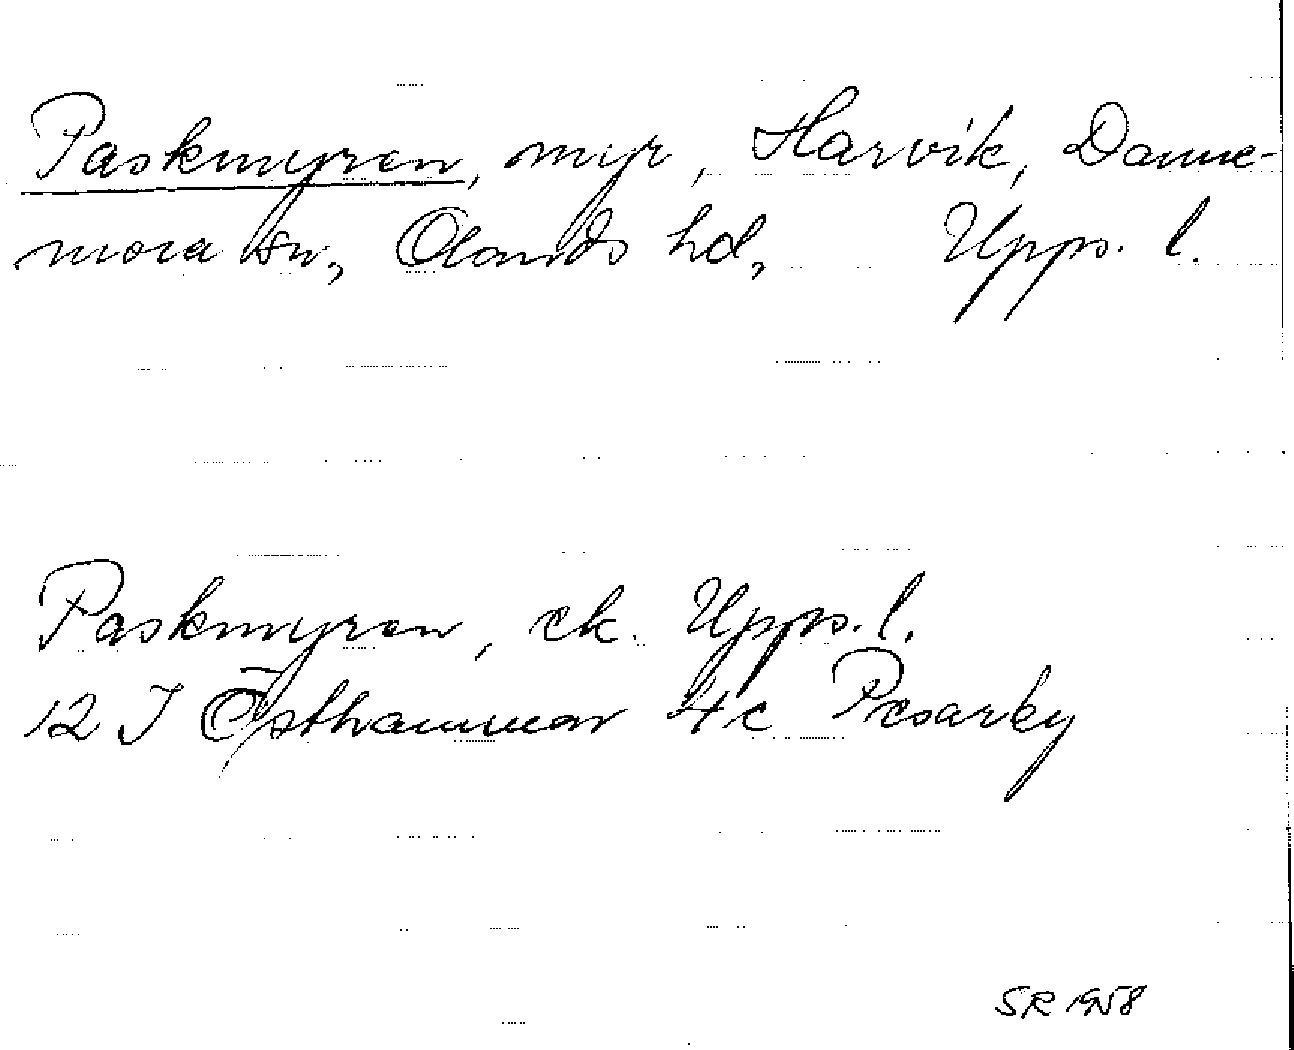 Paskmyren, myr, Harvik, Danne-
mora sn, Olands hd, Upps. l.
Paskmyren, ek. Upps. l.
12 I Östhammar 4c Pesarby
SR 1958